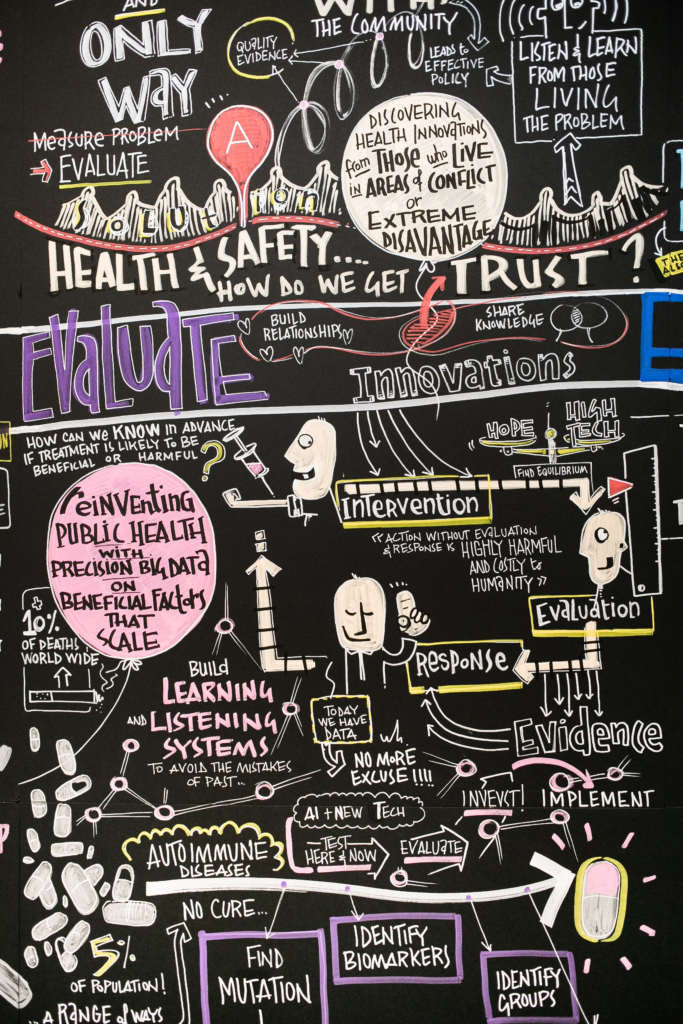 AND
ONLY
WAY
WITH
THE COMMUNITY
QUALITY
EVIDENCE
LEADS to
EFFECTIVE
POLICY
LISTEN & LEARN
FROM THOSE
LIVING
THE PROBLEM
Measure Problem
EVALUATE
A
Solution
DISCOVERING
HEALTH INNOVATIONS
from THOSE who LIVE
in AREAS of CONFLICT
or
EXTREME
DISAVANTAGE
HEALTH & SAFETY....
HOW DO WE GET TRUST?
EVALUATE
BUILD
RELATIONSHIPS
SHARE
KNOWLEDGE
Innovations
HOW CAN we KNOW IN ADVANCE
IF TREATMENT IS LIKELY TO BE
BENEFICIAL OR HARMFUL
?
HOPE
HIGH
TECH
FIND EQUILIBRIUM
INtervention
"ACTION WITHOUT EVALUATION
& RESPONSE is HIGHLY HARMFUL
AND COSTLY to
HUMANITY"
reINVenting
PUBLIC HEALTH
WITH
PRECISION BIG DATA
ON
BENEFICIAL FACTORS
THAT
SCALE
Evaluation
RESPONSE
10%
OF DEATHS
WORLD WIDE
Evidence
BUILD
LEARNING
AND LISTENING
SYSTEMS
TO AVOID THE MISTAKES
OF PAST...
TODAY
WE HAVE
DATA
NO MORE
EXCUSE!!!!
INVEST!
IMPLEMENT
AI + NEW TECH
TEST
HERE & NOW
EVALUATE
AUTOIMMUNE
DISEASES
NO CURE...
5%
OF POPULATION!
..A RANGE OF WAYS
FIND
MUTATION
IDENTIFY
BIOMARKERS
IDENTIFY
GROUPS